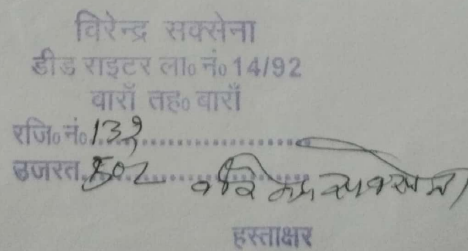 विरेन्द्र सक्सेना
डीड राइटर ला० नं० 14/92
वाराँ तह० बाराँ
रजि० नं०
उजरत
हस्ताक्षर